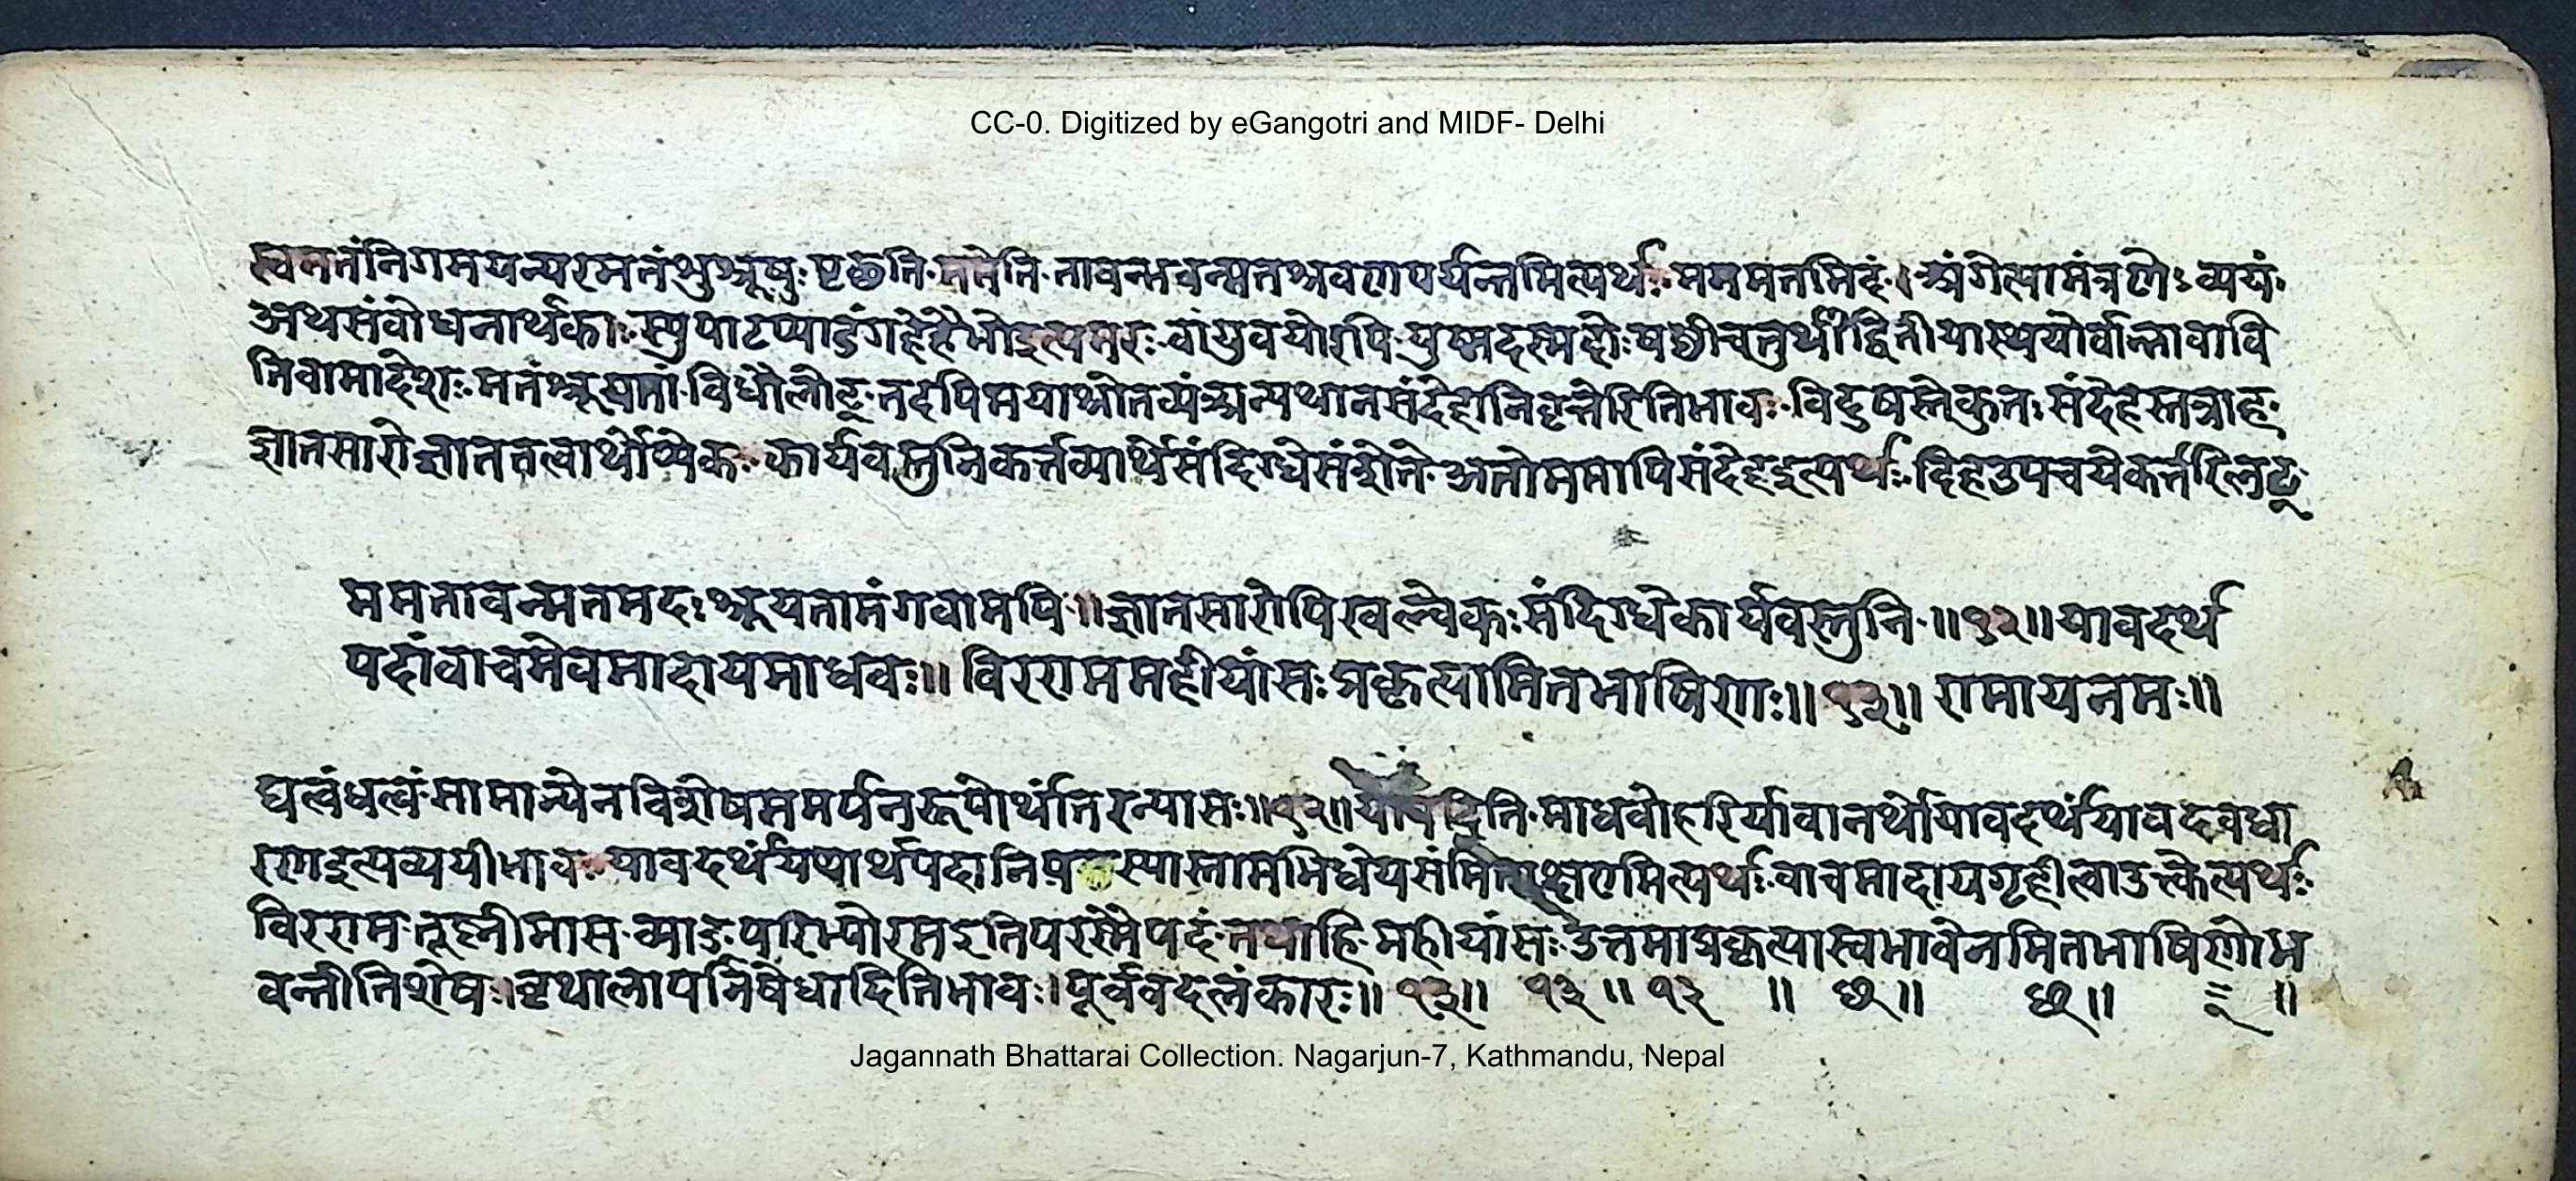 CC-0. Digitized by eGangotri and MIDF- Delhi
स्वमतंनिगमयन्परमतंशुश्रूषुः पृछति ममेति तावन्तवन्मतश्रवणपर्यन्तमित्यर्थः मममतमिदं । अंगेत्यामंत्रणेऽव्ययं
अथसंबोधनार्थकाः स्युपाटप्याडंगहेहैभोइत्यमरः वांयुवयोरपि युष्मदस्मदोः षष्ठीचतुर्थीद्वितीयास्थयोर्वान्नावावि
तिवामादेशः मतंश्रूयतां विधौलोट् तदपिमयाश्रोतव्यं अन्यथानसंदेहोनिवृत्तेरितिभावः विदुषस्तेकुतः संदेहस्तत्राह
ज्ञानसारोज्ञाततत्वार्थोप्येकः कार्यवस्तुनिकर्त्तव्यार्थेसंदिग्धेसंशेते अतोममापिसंदेहइत्यर्थः दिहउपचयेकर्त्तरिलट्
ममतावन्मतमदः श्रूयतामंगवामपि ॥ज्ञानसारोपिखल्वेकः संदिग्धेकार्यवस्तुनि ॥१२॥ यावदर्थ
पदांवाचमेवमादायमाधवः॥ विरराममहीयांसः प्रकृत्यामितभाषिणः॥१३॥ रामायनमः॥
घत्वंधत्वं सामान्येनविशेषसमर्पनरूपोर्थांतरन्यासः॥१२॥ यावदिति माधवोहरिर्यावानर्थोयावदर्थंयावदवधा
रणइत्यव्ययीभावः यावदर्थं पदानि स्यास्तामभिधेयसंमि मित्यर्थः वाचमादायगृहीत्वाउत्क्तेत्यर्थः
विरराम तूह्नीमास व्याङ् परिभ्योरमइतिपरस्मैपदं तथाहि महीयांसः उत्तमाप्रकृत्यास्वभावेनमितभाषिणोभ
वन्तीतिशेषः। वृथालापनिषेधादितिभावः। पूर्ववदलंकारः॥ १३॥ १३ ॥ १२ ॥ छ॥ छ॥ ॥
Jagannath Bhattarai Collection. Nagarjun-7, Kathmandu, Nepal